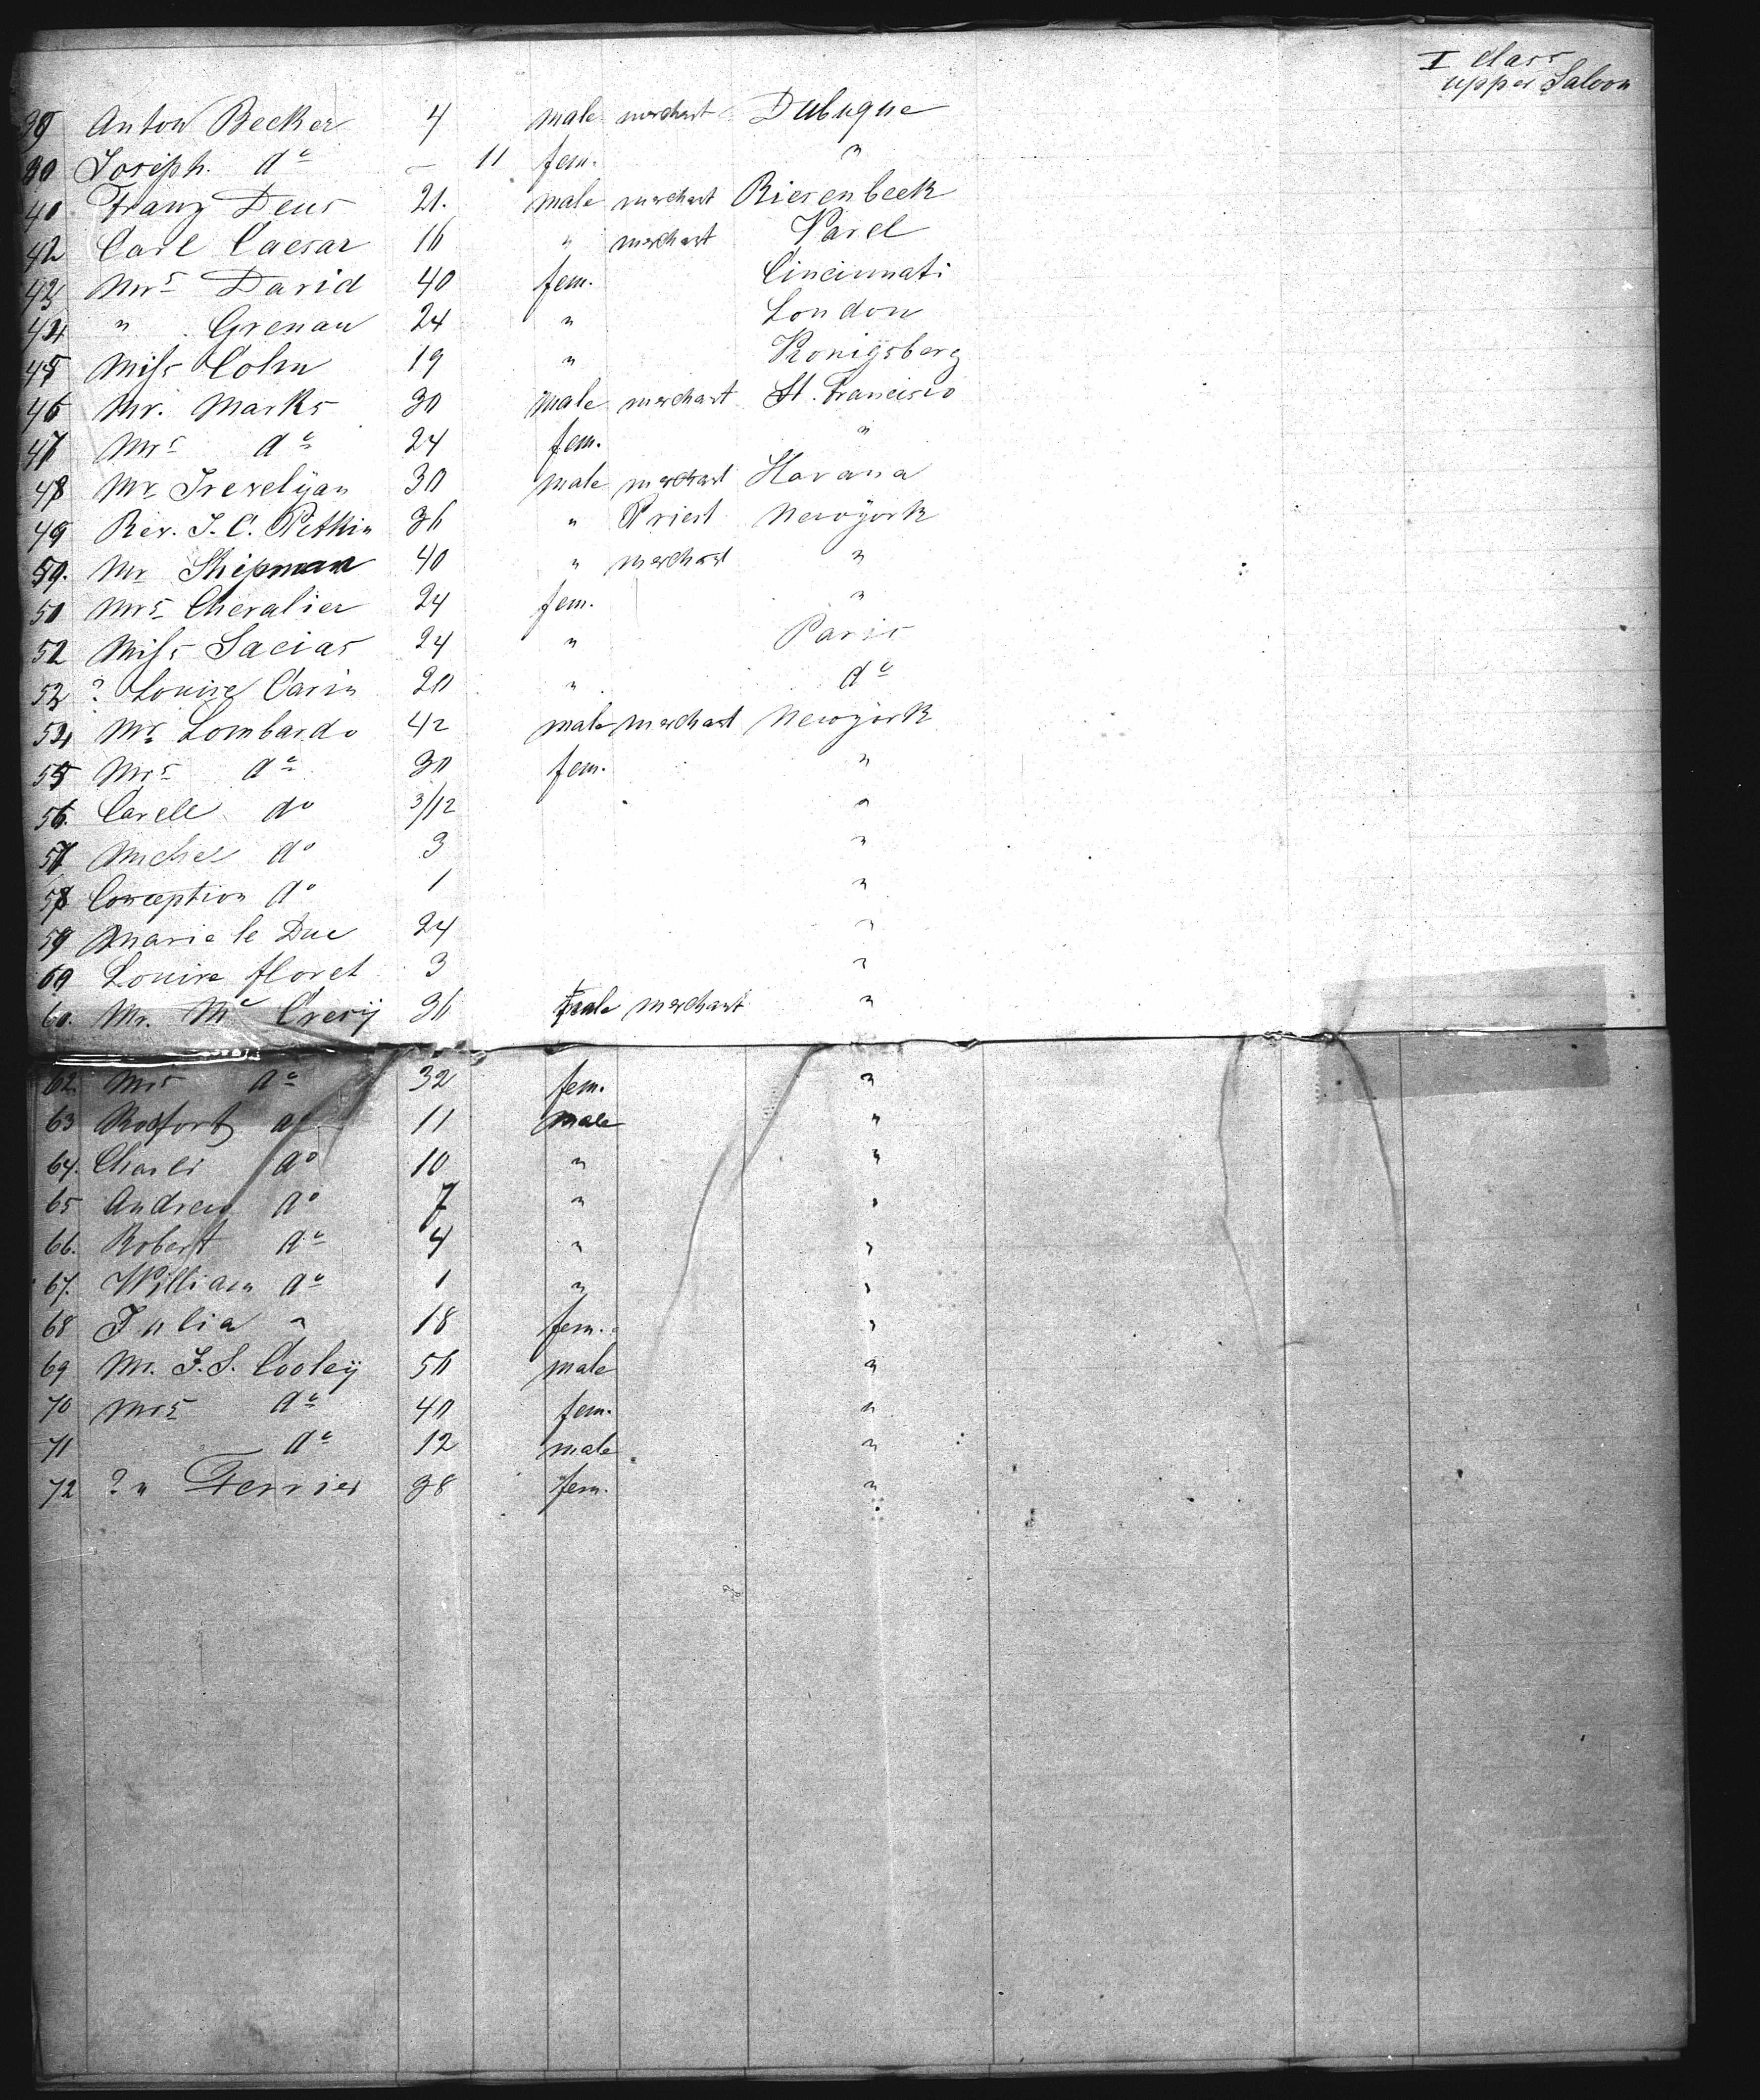 I class
upper Saloon
39 Anton Becker 4 male merchant Dubuque
40 Joseph. do — 11 fem. "
41 Franz Deus 21. male merchant Riesenbeck
42 Carl Caesar 16 " merchant Varel
43 Mrs David 40 fem. Cincinnati
44 " Grenau 24 " London
45 Miss Cohn 19 " Konigsberg
46 Mr. Marks 30 male merchant St. Francisco
47 Mrs do 24 fem. "
48 Mr Trevelyan 30 male merchant Havana
49 Rev. J. C. Petkin 36 " Priest Newyork
50. Mr Shipman 40 " merchant "
51 Mrs Chevalier 24 fem. "
52 Miss Sacias 24 " Paris
53 ? Louise Carin 20 " do
54 Mr Lombardo 42 male merchant Newyork
55 Mrs do 30 fem. "
56. Carell do 3/12 "
57 Michel do 3 "
58 Conception do 1 "
59 Marie le Duc 24 "
60 Louise floret 3 "
Mr. Mc Crery 36 male merchant "
62. Mrs do 32 fem. "
63 do 11 male "
64. Charls do 10 " "
65 Andrew do 7 " "
66. Robert do 4 " "
67. William do 1 " "
68 Julia " 18 fem. "
69 Mr. J. S. Cooley 56 male "
70 Mrs do 40 fem. "
71 do 12 male "
72 ? " Ferrier 38 fem. "